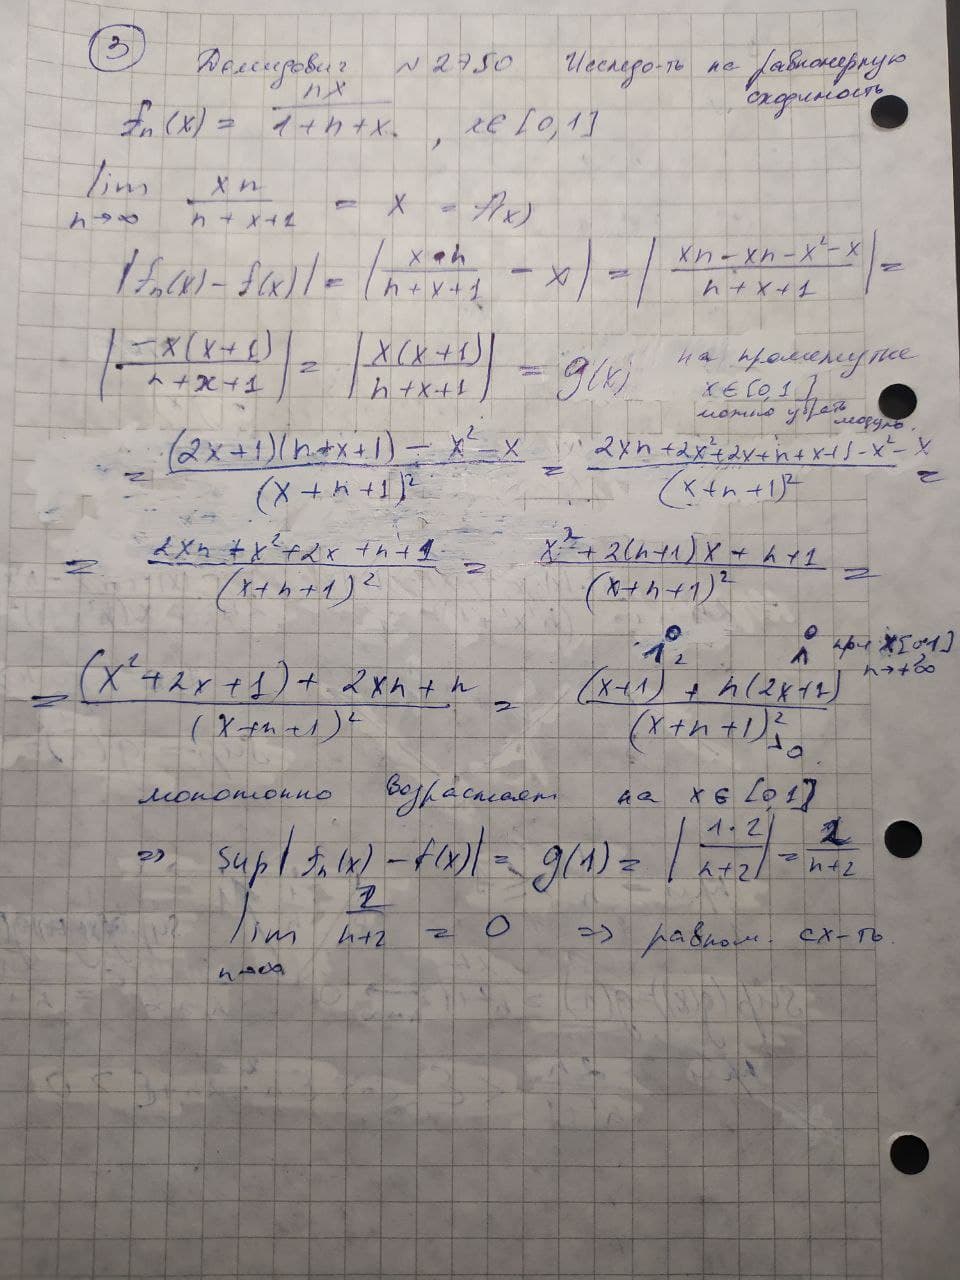 3
Демидович N 2750 Исследо-ть на равномерную сходимость
fₙ(x) = nx/(1+n+x), x∈[0,1]
lim n→∞ xn/(n+x+1) = x = f(x)
|fₙ(x) - f(x)| = |x·n/(n+x+1) - x| = |(xn - xn - x² - x)/(n+x+1)| =
|-x(x+1)/(n+x+1)| = |x(x+1)/(n+x+1)| = g(x) на промежутке
x∈[0,1]
можно убрать модуль.
= ((2x+1)(n+x+1) - x² - x)/(x+n+1)² = (2xn+2x²+2x+n+x+1-x²-x)/(x+n+1)² =
= (2xn+x²+2x+n+1)/(x+n+1)² = (x²+2(n+1)x+n+1)/(x+n+1)² =
при x[0,1]
n→+∞
= ((x²+2x+1)+2xn+n)/(x+n+1)² = ((x+1)²+n(2x+1))/(x+n+1)²
монотонно возрастает на x∈[0,1]
=> sup|fₙ(x) - f(x)| = g(1) = |1·2/(n+2)| = 2/(n+2)
lim n→∞ 2/(n+2) = 0 => равном. сх-ть.